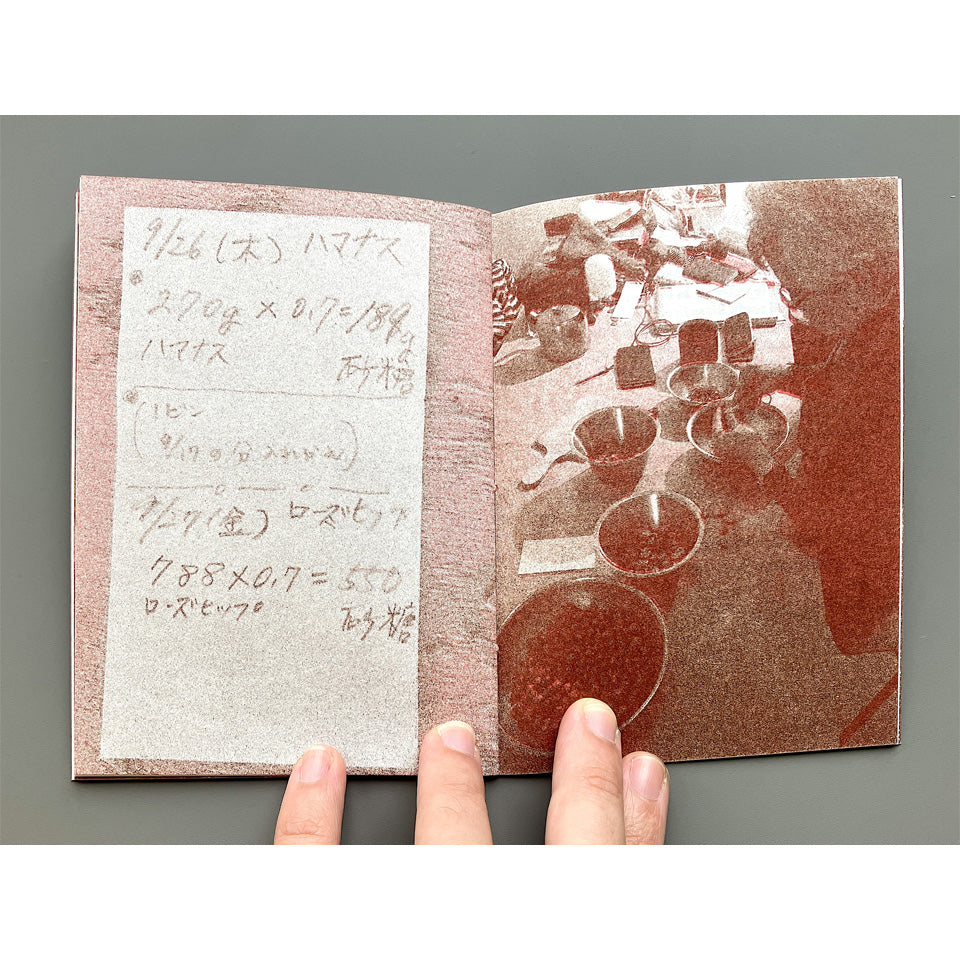 9/26(木) ハマナス
270g × 0.7=189g
ハマナス 砂糖
(1ビン
9/17の分入れかえ)
9/27(金) ローズヒップ
788×0.7=550
ローズヒップ 砂糖